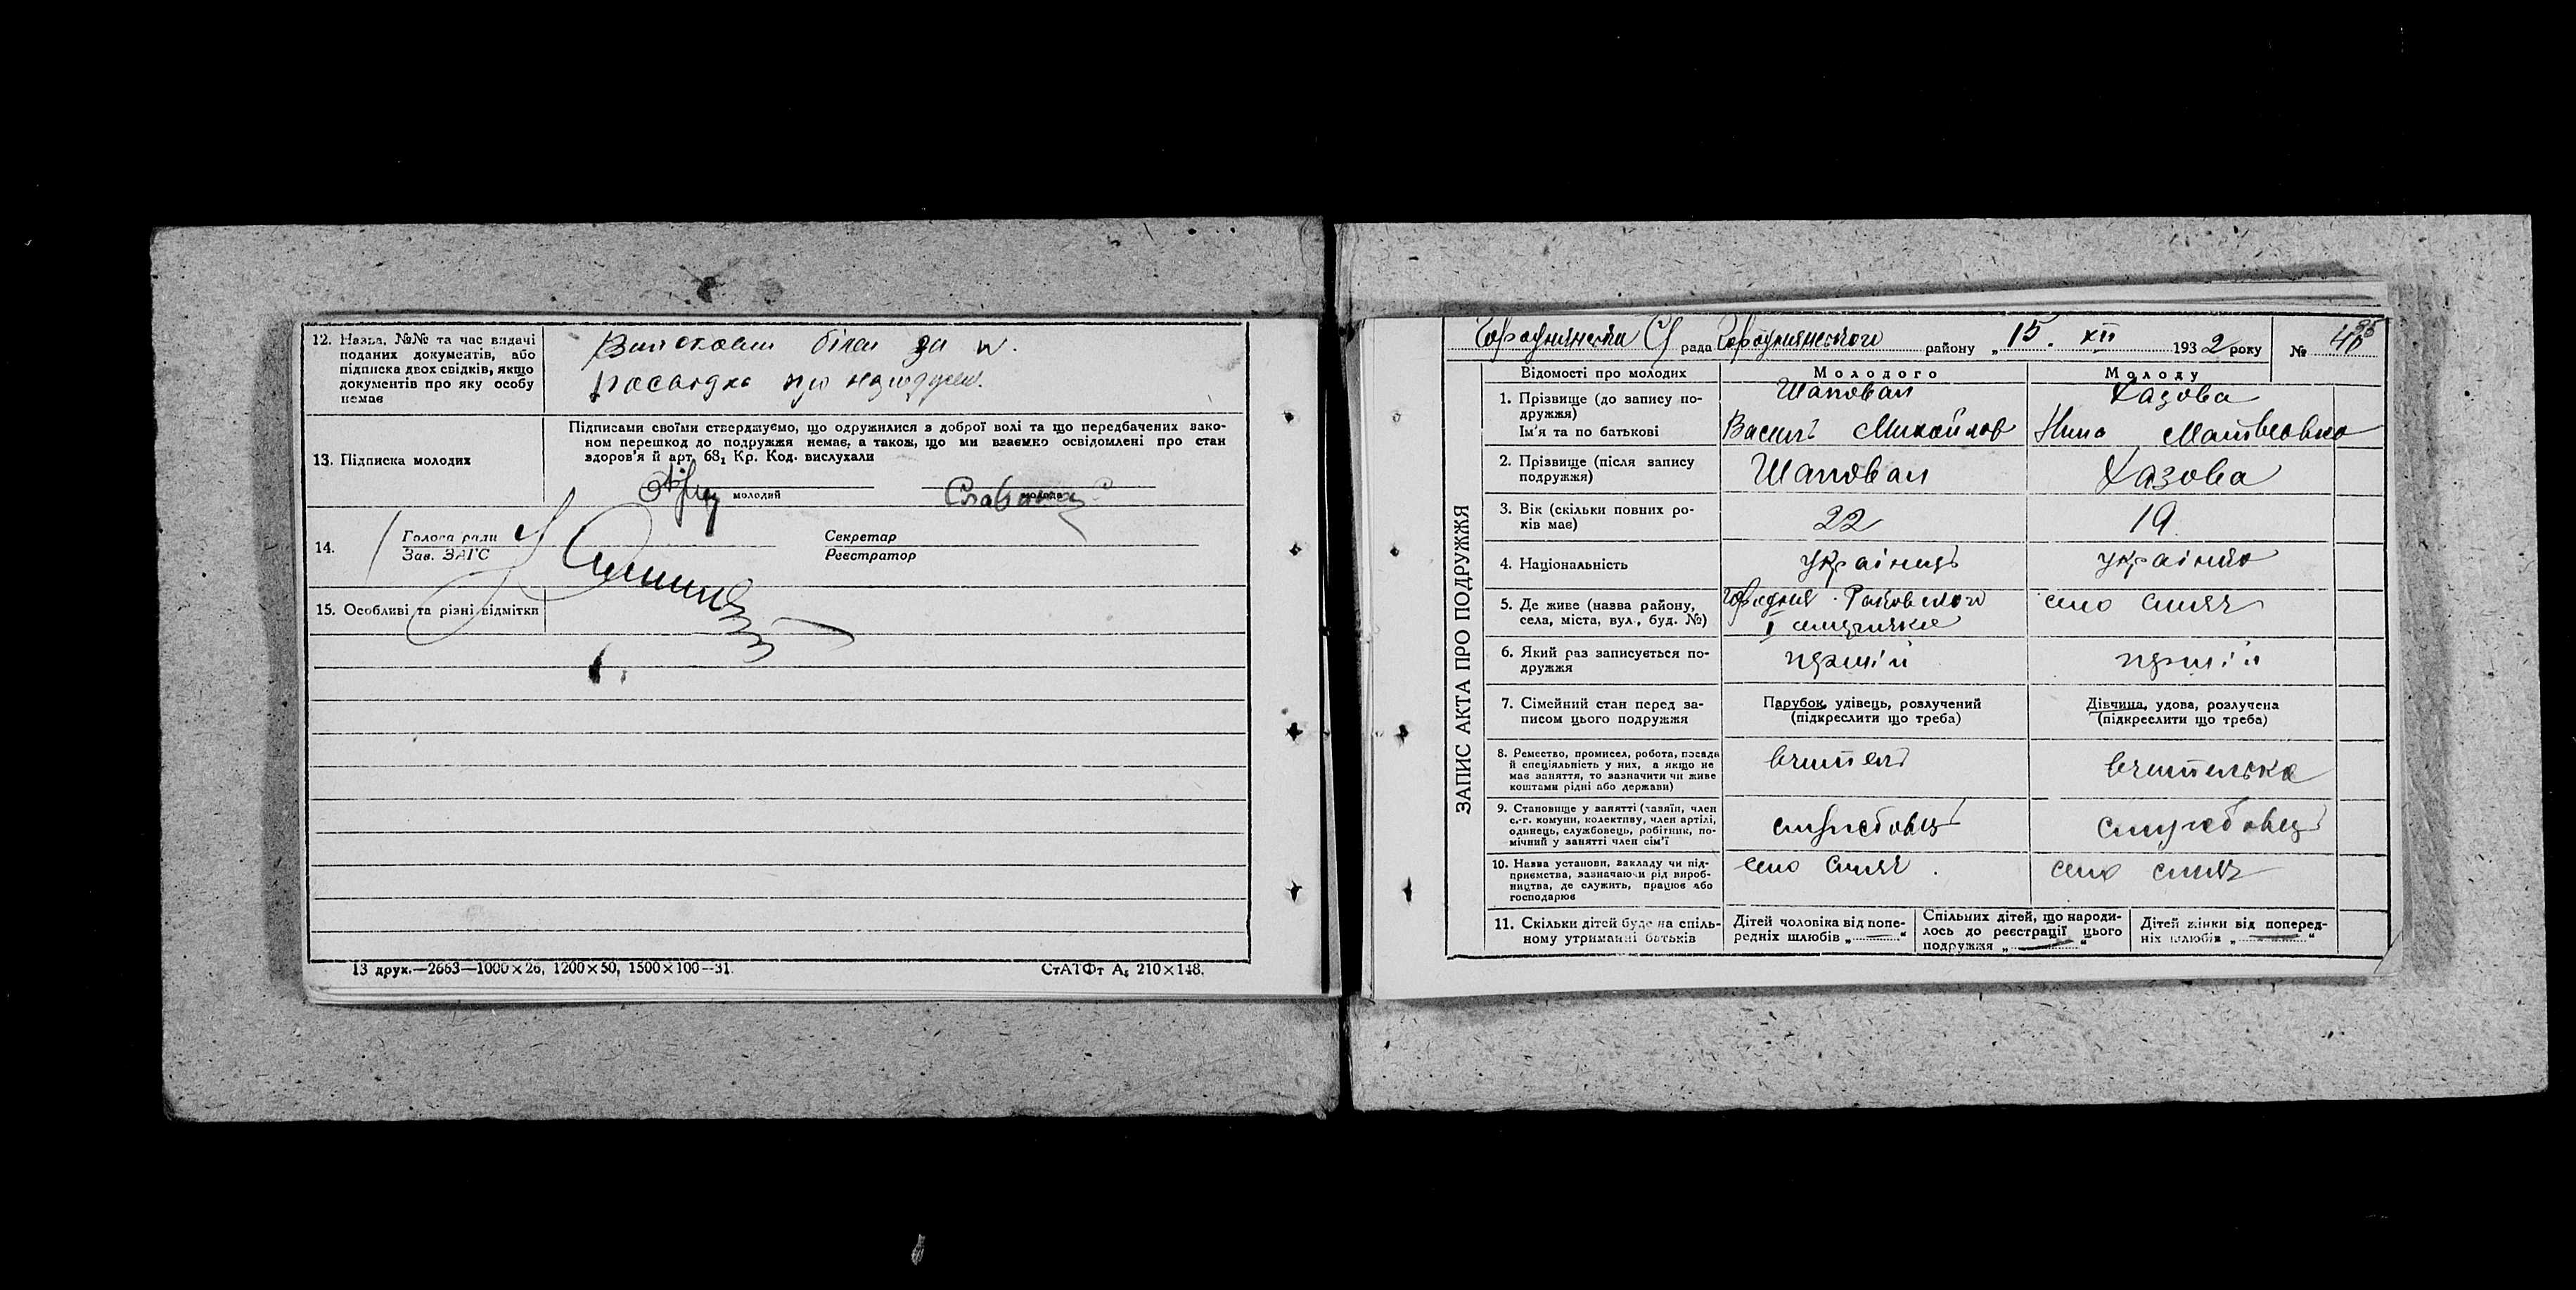 12. Назва, №№ та час видачі
поданих документів, або
підписка двох свідків, якщо
документів про яку особу
немає
білет за №
13. Підписка молодих
Підписами своїми стверджуємо, що одружилися з доброї волі та що передбачених зако-
ном перешкод до подружжя немає, а також, що ми взаємно освідомлені про стан
здоров'я й арт. 68, Кр. Код. вислухали
молодий
молода
14.
Голова ради
Зав. ЗАГС
Секретар
Реєстратор
15. Особливі та різні відмітки
13 друк.—2663—1000×26, 1200×50, 1500×100—31.
СтАТФт А5 210×148.
ЗАПИС АКТА ПРО ПОДРУЖЖЯ
Городнянська рада Городнянського району „15. XII 1932 року №
Відомості про молодих Молодого Молоду
1. Прізвище (до запису по-
дружжя)
Ім'я та по батькові
Шаповал
Василь Михайлов
Хазова
Ніна Матвеовна
2. Прізвище (після запису
подружжя)
Шаповал
Хазова
3. Вік (скільки повних ро-
ків має)
22
19
4. Національність
українець
5. Де живе (назва району,
села, міста, вул., буд. №)
Городня
село
село
6. Який раз записується по-
дружжя
перший
перший
7. Сімейний стан перед за-
писом цього подружжя
Парубок, удівець, розлучений
(підкреслити що треба)
Дівчина, удова, розлучена
(підкреслити що треба)
8. Ремество, промисел, робота, посада
й спеціяльність у них, а якщо не
має заняття, то зазначити чи живе
коштами рідні або держави)
вчитель
вчителька
9. Становище у занятті (хазяїн, член
с.-г. комуни, колективу, член артілі,
одинець, службовець, робітник, по-
мічний у занятті член сім'ї
службовець
службовець
10. Назва установи, закладу чи під-
приємства, зазначаючи рід вироб-
ництва, де служить, працює або
господарює
село
село
11. Скільки дітей буде на спіль-
ному утриманні батьків
Дітей чоловіка від попе-
редніх шлюбів „—“
Спільних дітей, що народи-
лось до реєстрації цього
подружжя „—“
Дітей жінки від поперед-
ніх шлюбів „—“